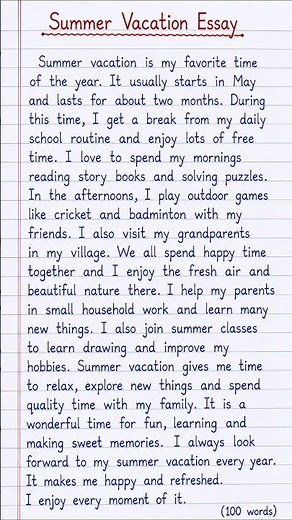 Summer Vacation Essay
Summer vacation is my favorite time
of the year. It usually starts in May
and lasts for about two months. During
this time, I get a break from my daily
school routine and enjoy lots of free
time. I love to spend my mornings
reading story books and solving puzzles.
In the afternoons, I play outdoor games
like cricket and badminton with my
friends. I also visit my grandparents
in my village. We all spend happy time
together and I enjoy the fresh air and
beautiful nature there. I help my parents
in small household work and learn many
new things. I also join summer classes
to learn drawing and improve my
hobbies. Summer vacation gives me time
to relax, explore new things and spend
quality time with my family. It is a
wonderful time for fun, learning and
making sweet memories. I always look
forward to my summer vacation every year.
It makes me happy and refreshed.
I enjoy every moment of it.
(100 words)